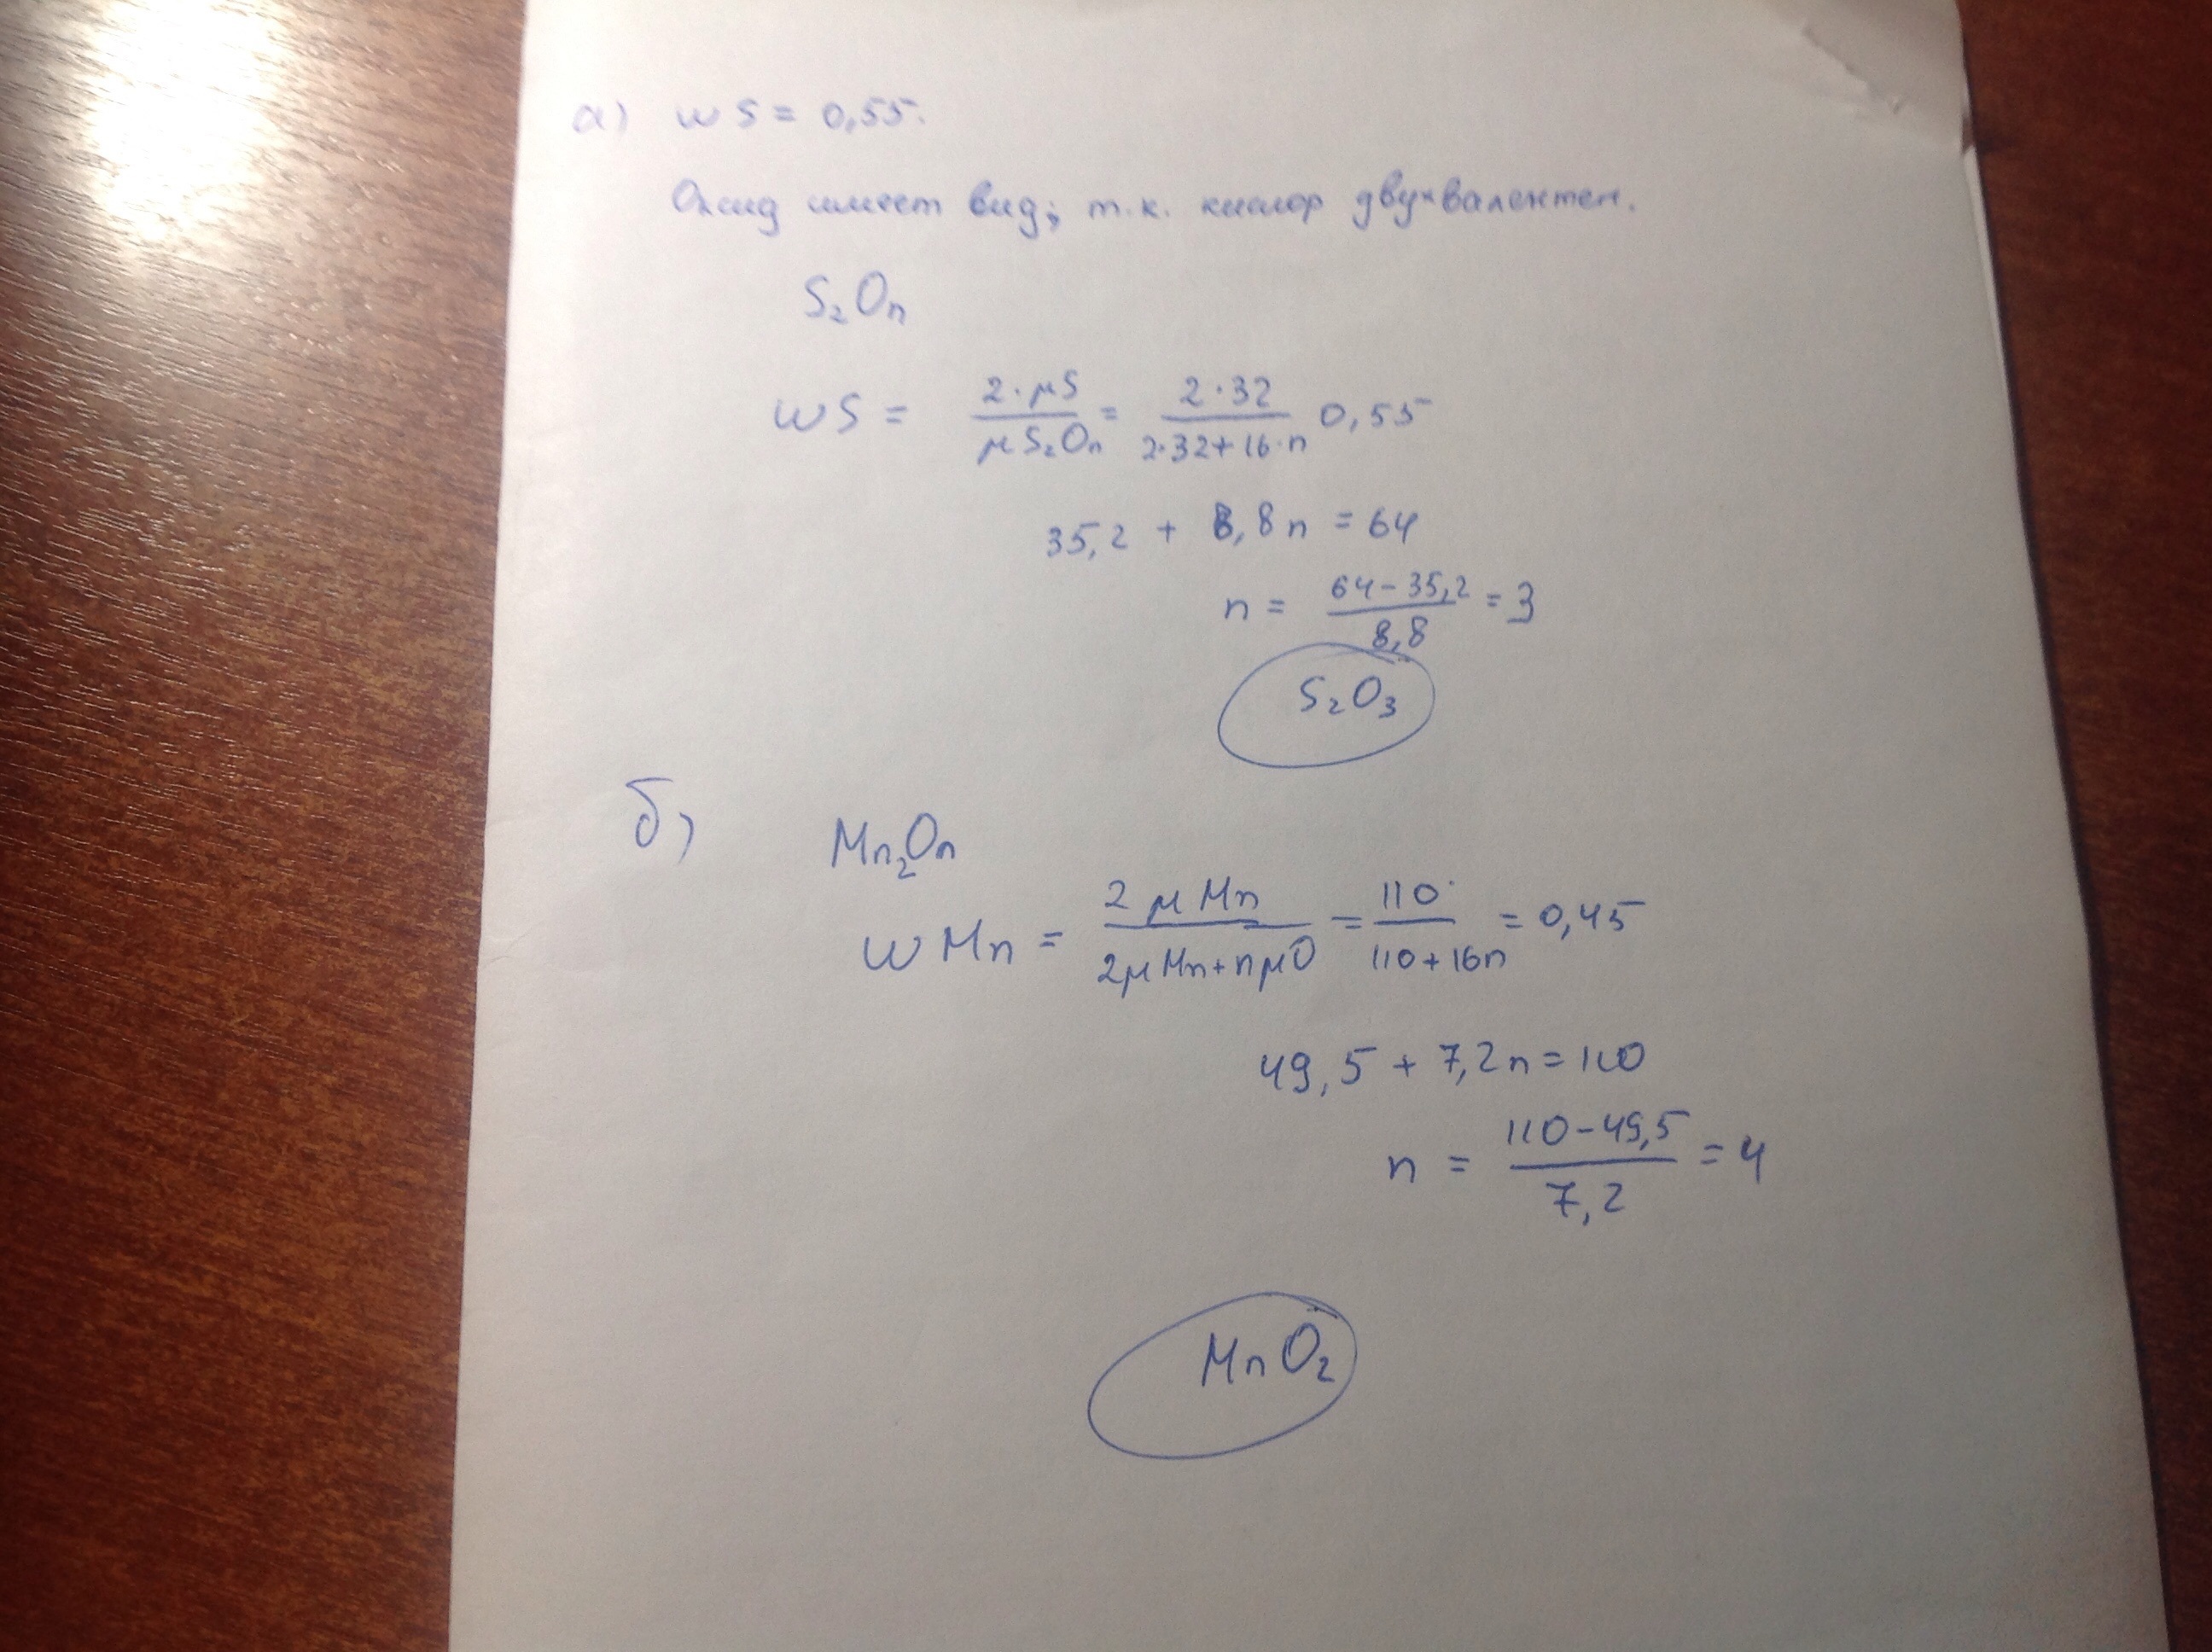 а) w S = 0,55.
Оксид имеет вид; т.к. кислор двухвалентен.
S₂Oₙ
w S = 2·μS / μS₂Oₙ = 2·32 / 2·32+16·n 0,55
35,2 + 8,8n = 64
n = 64-35,2 / 8,8 = 3
S₂O₃
б) Mn₂Oₙ
w Mn = 2μMn / 2μMn+nμO = 110 / 110+16n = 0,45
49,5 + 7,2n = 110
n = 110-49,5 / 7,2 = 4
MnO₂